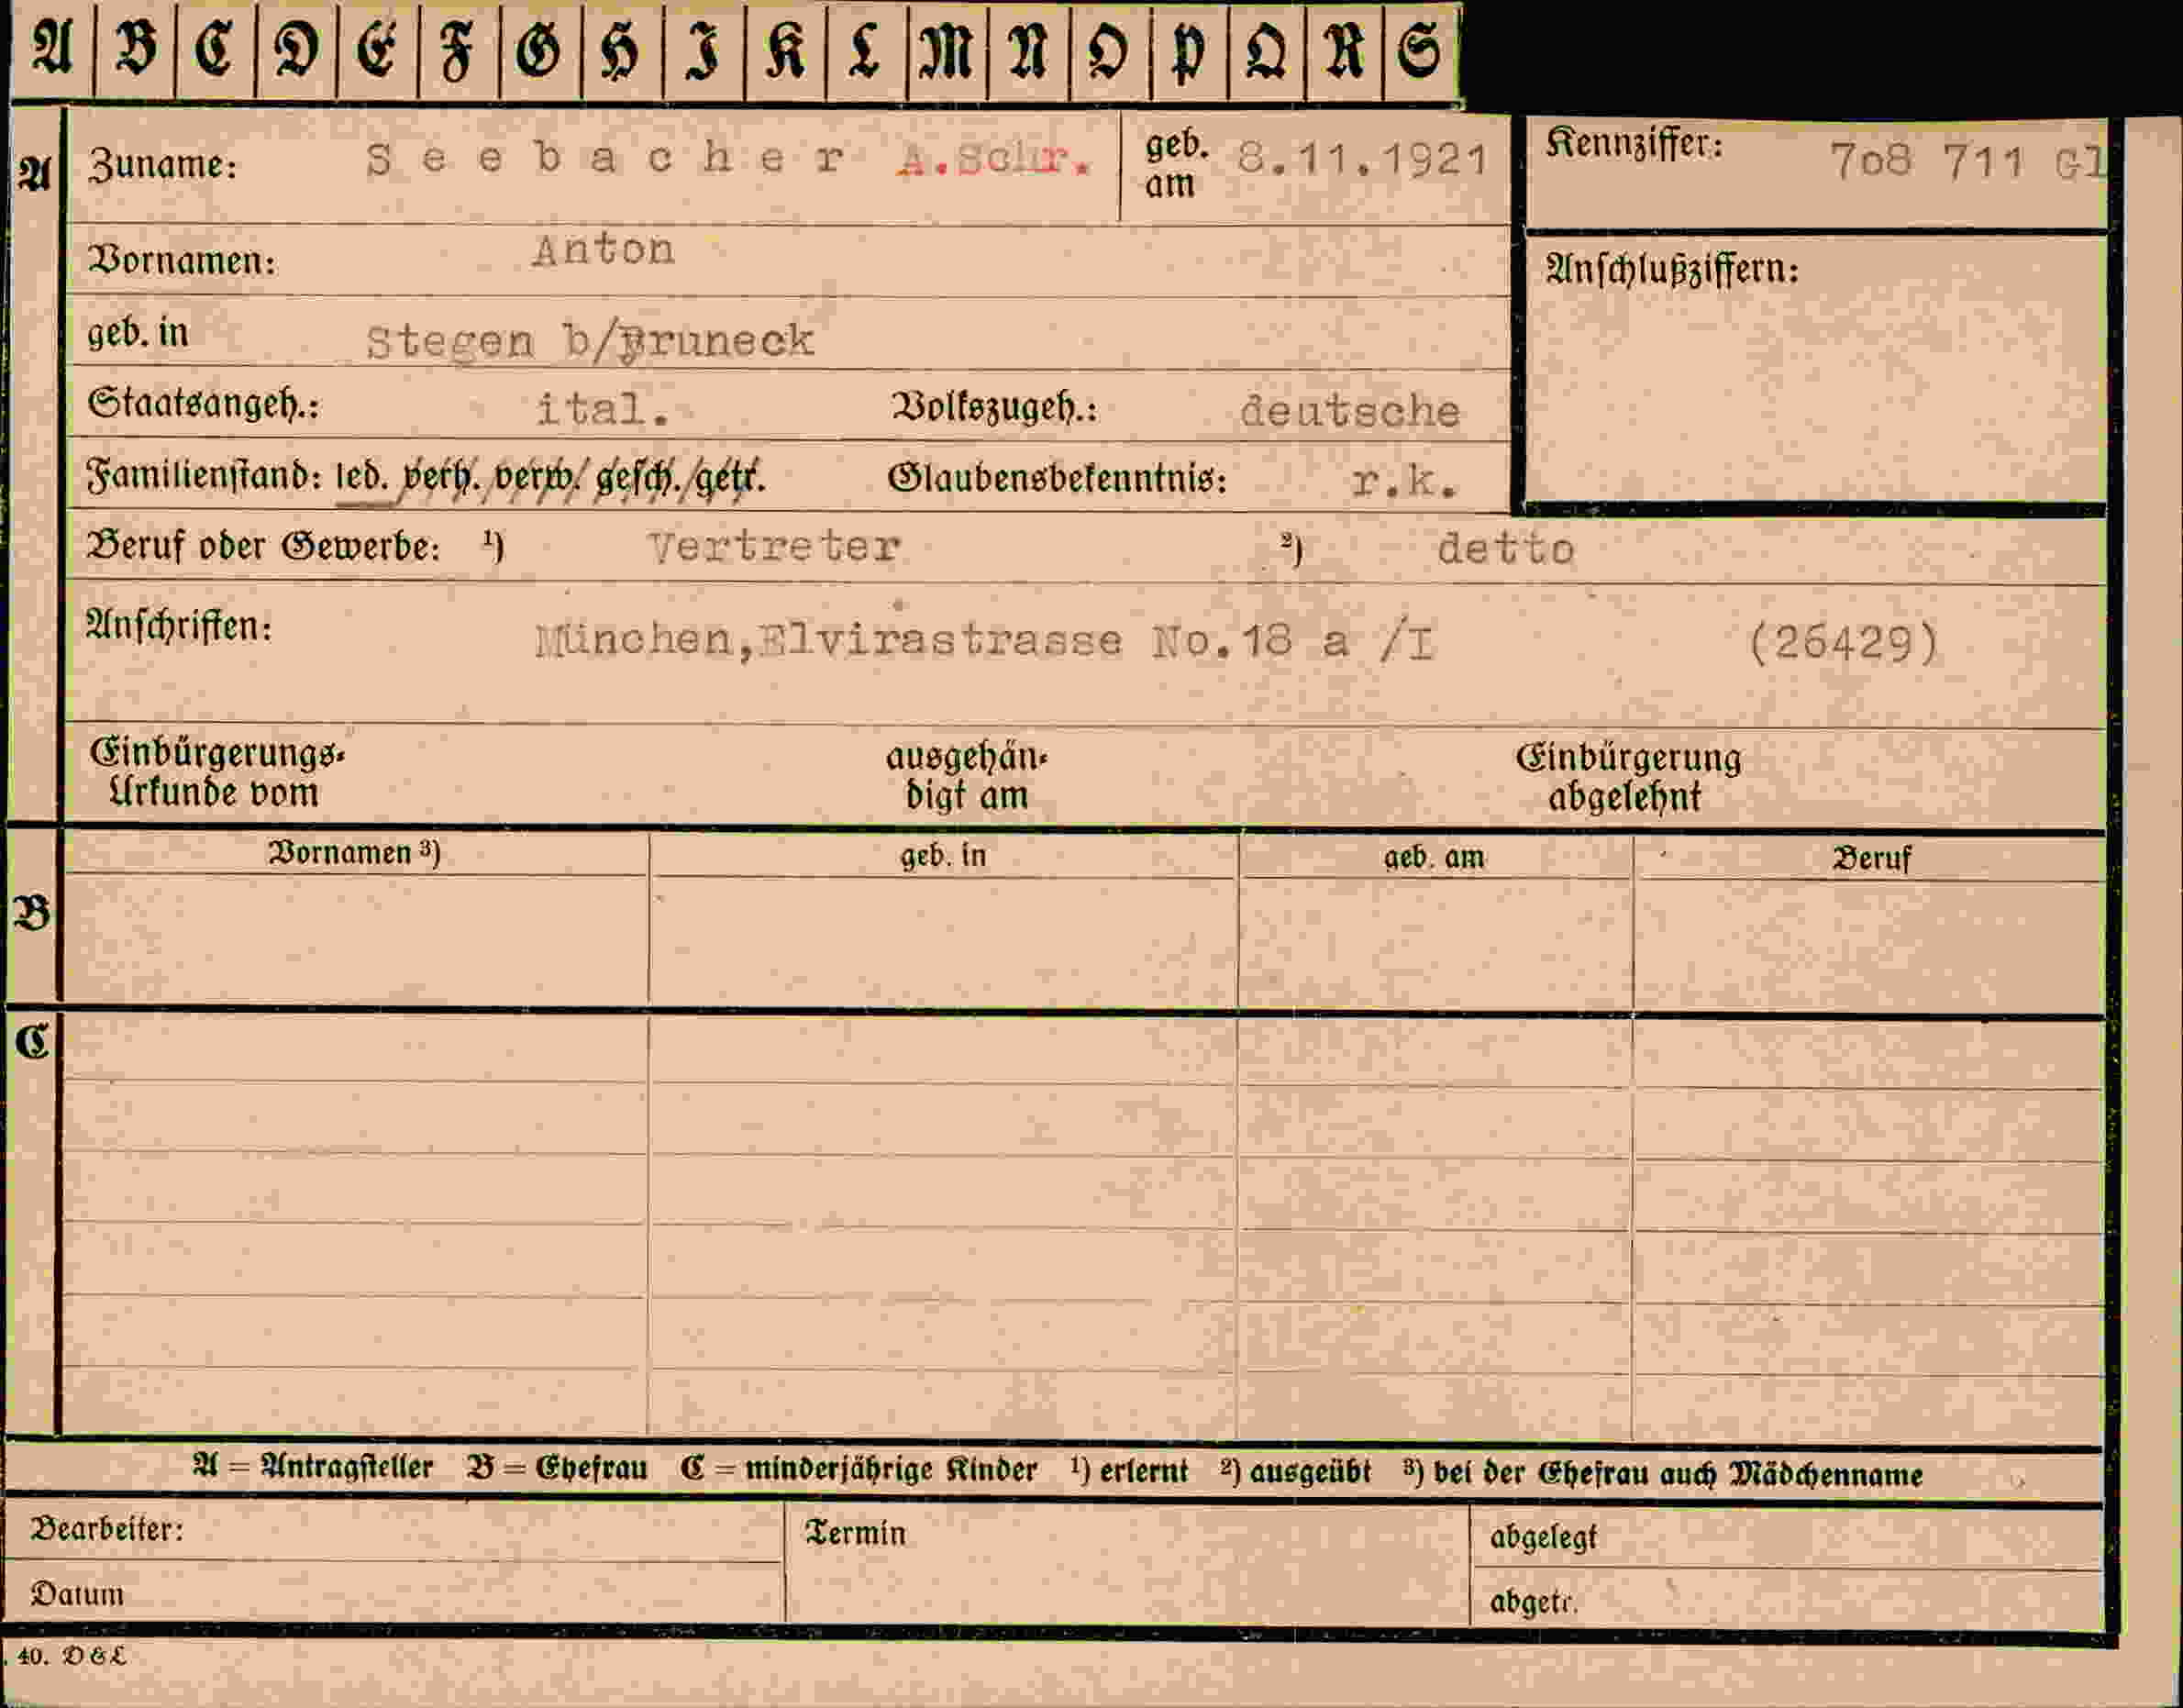 A B C D E F G H I K L M N O P Q R S
A Zuname: Seebacher A.Schr. geb. am 8.11.1921 Kennziffer: 7o8 711 Gl
Vornamen: Anton Anschlußziffern:
geb. in Stegen b/Bruneck
Staatsangeh.: ital. Volkszugeh.: deutsche
Familienstand: led. verh. verw. gesch./getr. Glaubensbekenntnis: r.k.
Beruf oder Gewerbe: ¹) Vertreter ²) detto
Anschriften: München,Elvirastrasse No.18 a /I (26429)
Einbürgerungs- ausgehän- Einbürgerung
Urkunde vom digt am abgelehnt
Vornamen ³) geb. in geb. am Beruf
B
C
A = Antragsteller B = Ehefrau C = minderjährige Kinder ¹) erlernt ²) ausgeübt ³) bei der Ehefrau auch Mädchenname
Bearbeiter: Termin abgelegt
Datum abgetr.
. 40. D & L